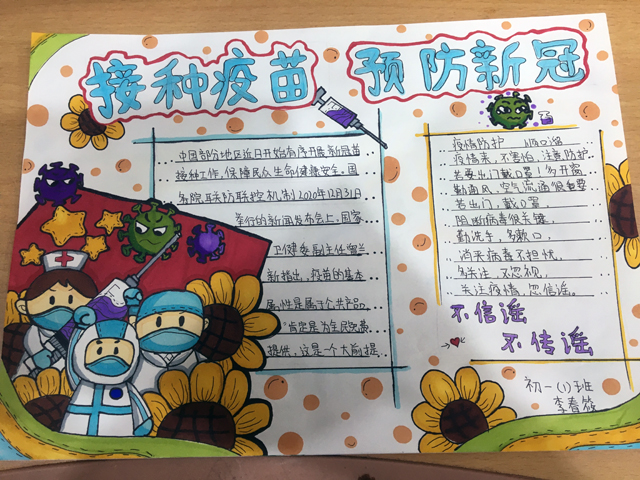 接种疫苗 预防新冠
中国部份地区近日开始有序开展新冠苗
接种工作,保障民众生命健康安全。国
务院联防联控机制2020年12月31日
举行的新闻发布会上,国家
卫健委副主任曾益
新指出,疫苗的基本
属性是属于公共产品,
肯定是为全民免费
提供,这是一个大前提
疫情防护 顺口溜
疫情来,不害怕,注意防护
若要出门戴口罩!多开窗
勤通风,空气流通很重要
若出门,戴口罩,
阻断病毒很关键。
勤洗手,多漱口,
消杀病毒不担忧。
多关注,不忽视,
关注疫情,忽信谣。
不信谣
不传谣
初一(1)班
李春筱